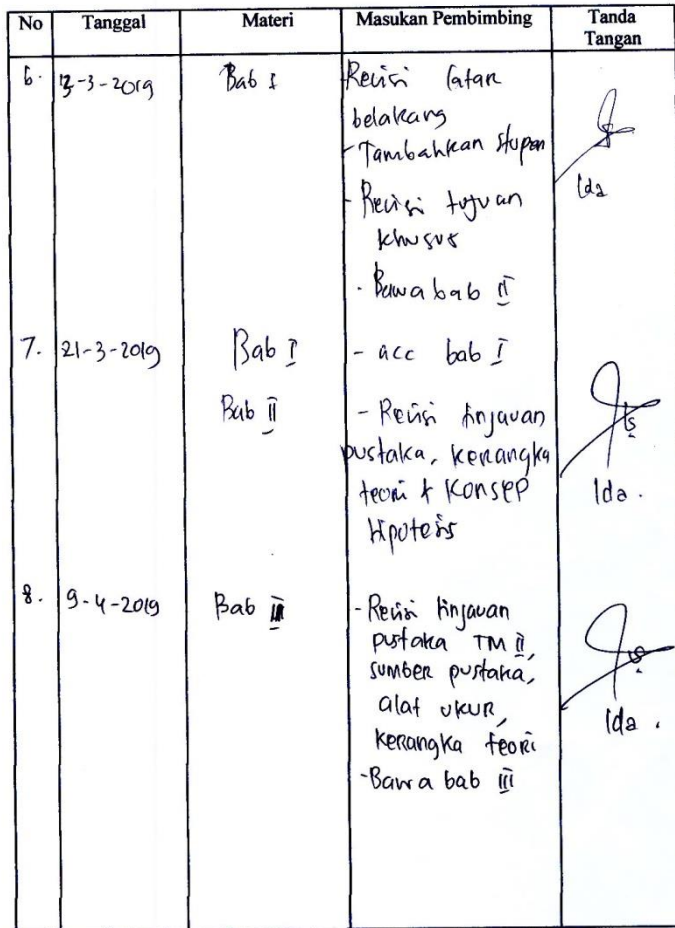 No Tanggal Materi Masukan Pembimbing Tanda Tangan
6. 13-3-2019 Bab I Revisi latar
belakang
- Tambahkan stupen
Ida
- Revisi tujuan
khusus
- Bawa bab II
7. 21-3-2019 Bab I - acc bab I
Bab II - Revisi tinjauan
pustaka, kerangka
teori & konsep
Hipotesis
Ida.
8. 9-4-2019 Bab - Revisi tinjauan
pustaka TM II,
sumber pustaka,
alat ukur,
kerangka teori
Ida.
- Bawa bab III